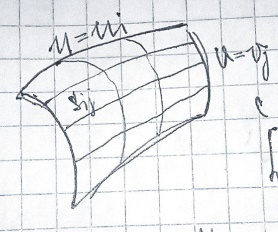 u=ui
u=vj
Sij